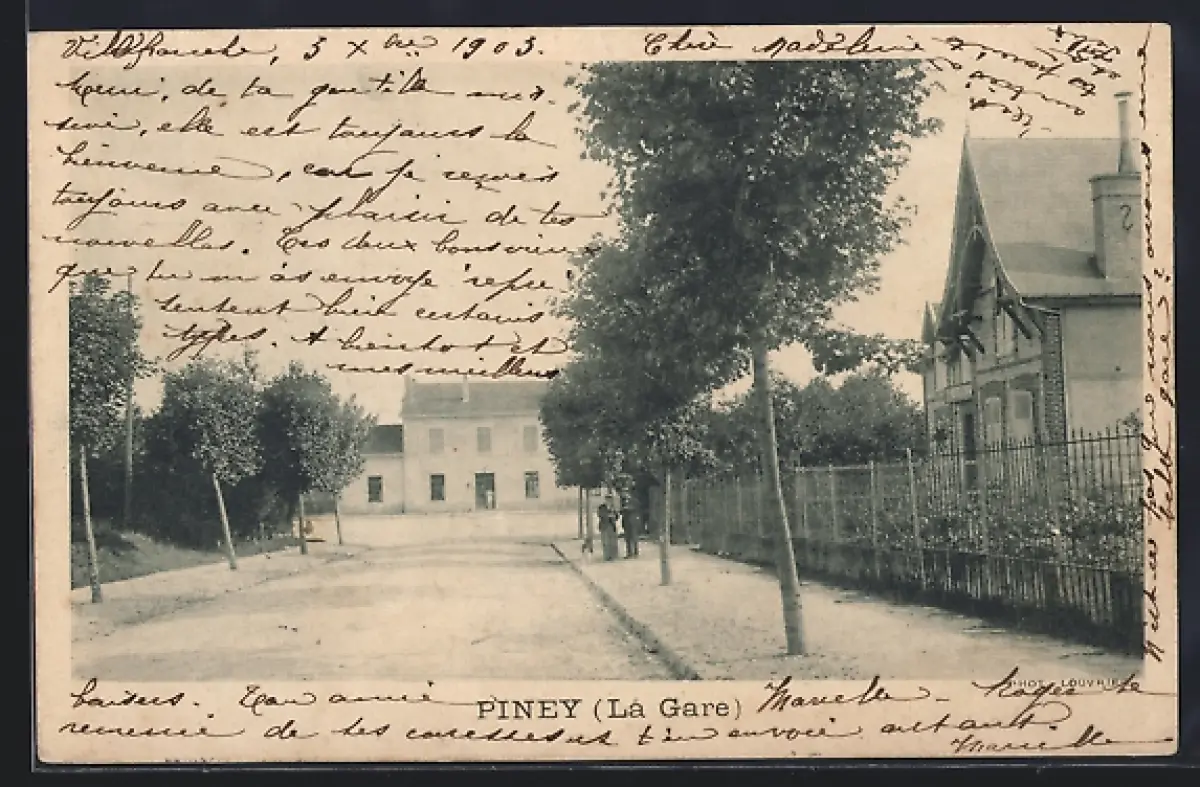 Villefranche, 3 Xbre 1903. Chère Madeleine
Merci, de ta gentille mis-
sive, elle est toujours la
bienvenue, car je reçois
toujours avec plaisir de tes
nouvelles. Ces deux bons vieux
que tu m'as envoyé repré-
sentent bien certains
types. A bientôt et
mes meilleurs
baisers. Ton amie Marcelle - Roger te
remercie de tes caresses et t'en envoie autant.
Marcelle
PINEY (La Gare)
PHOT. LOUVRIER
N'est-ce pas que nous avons une